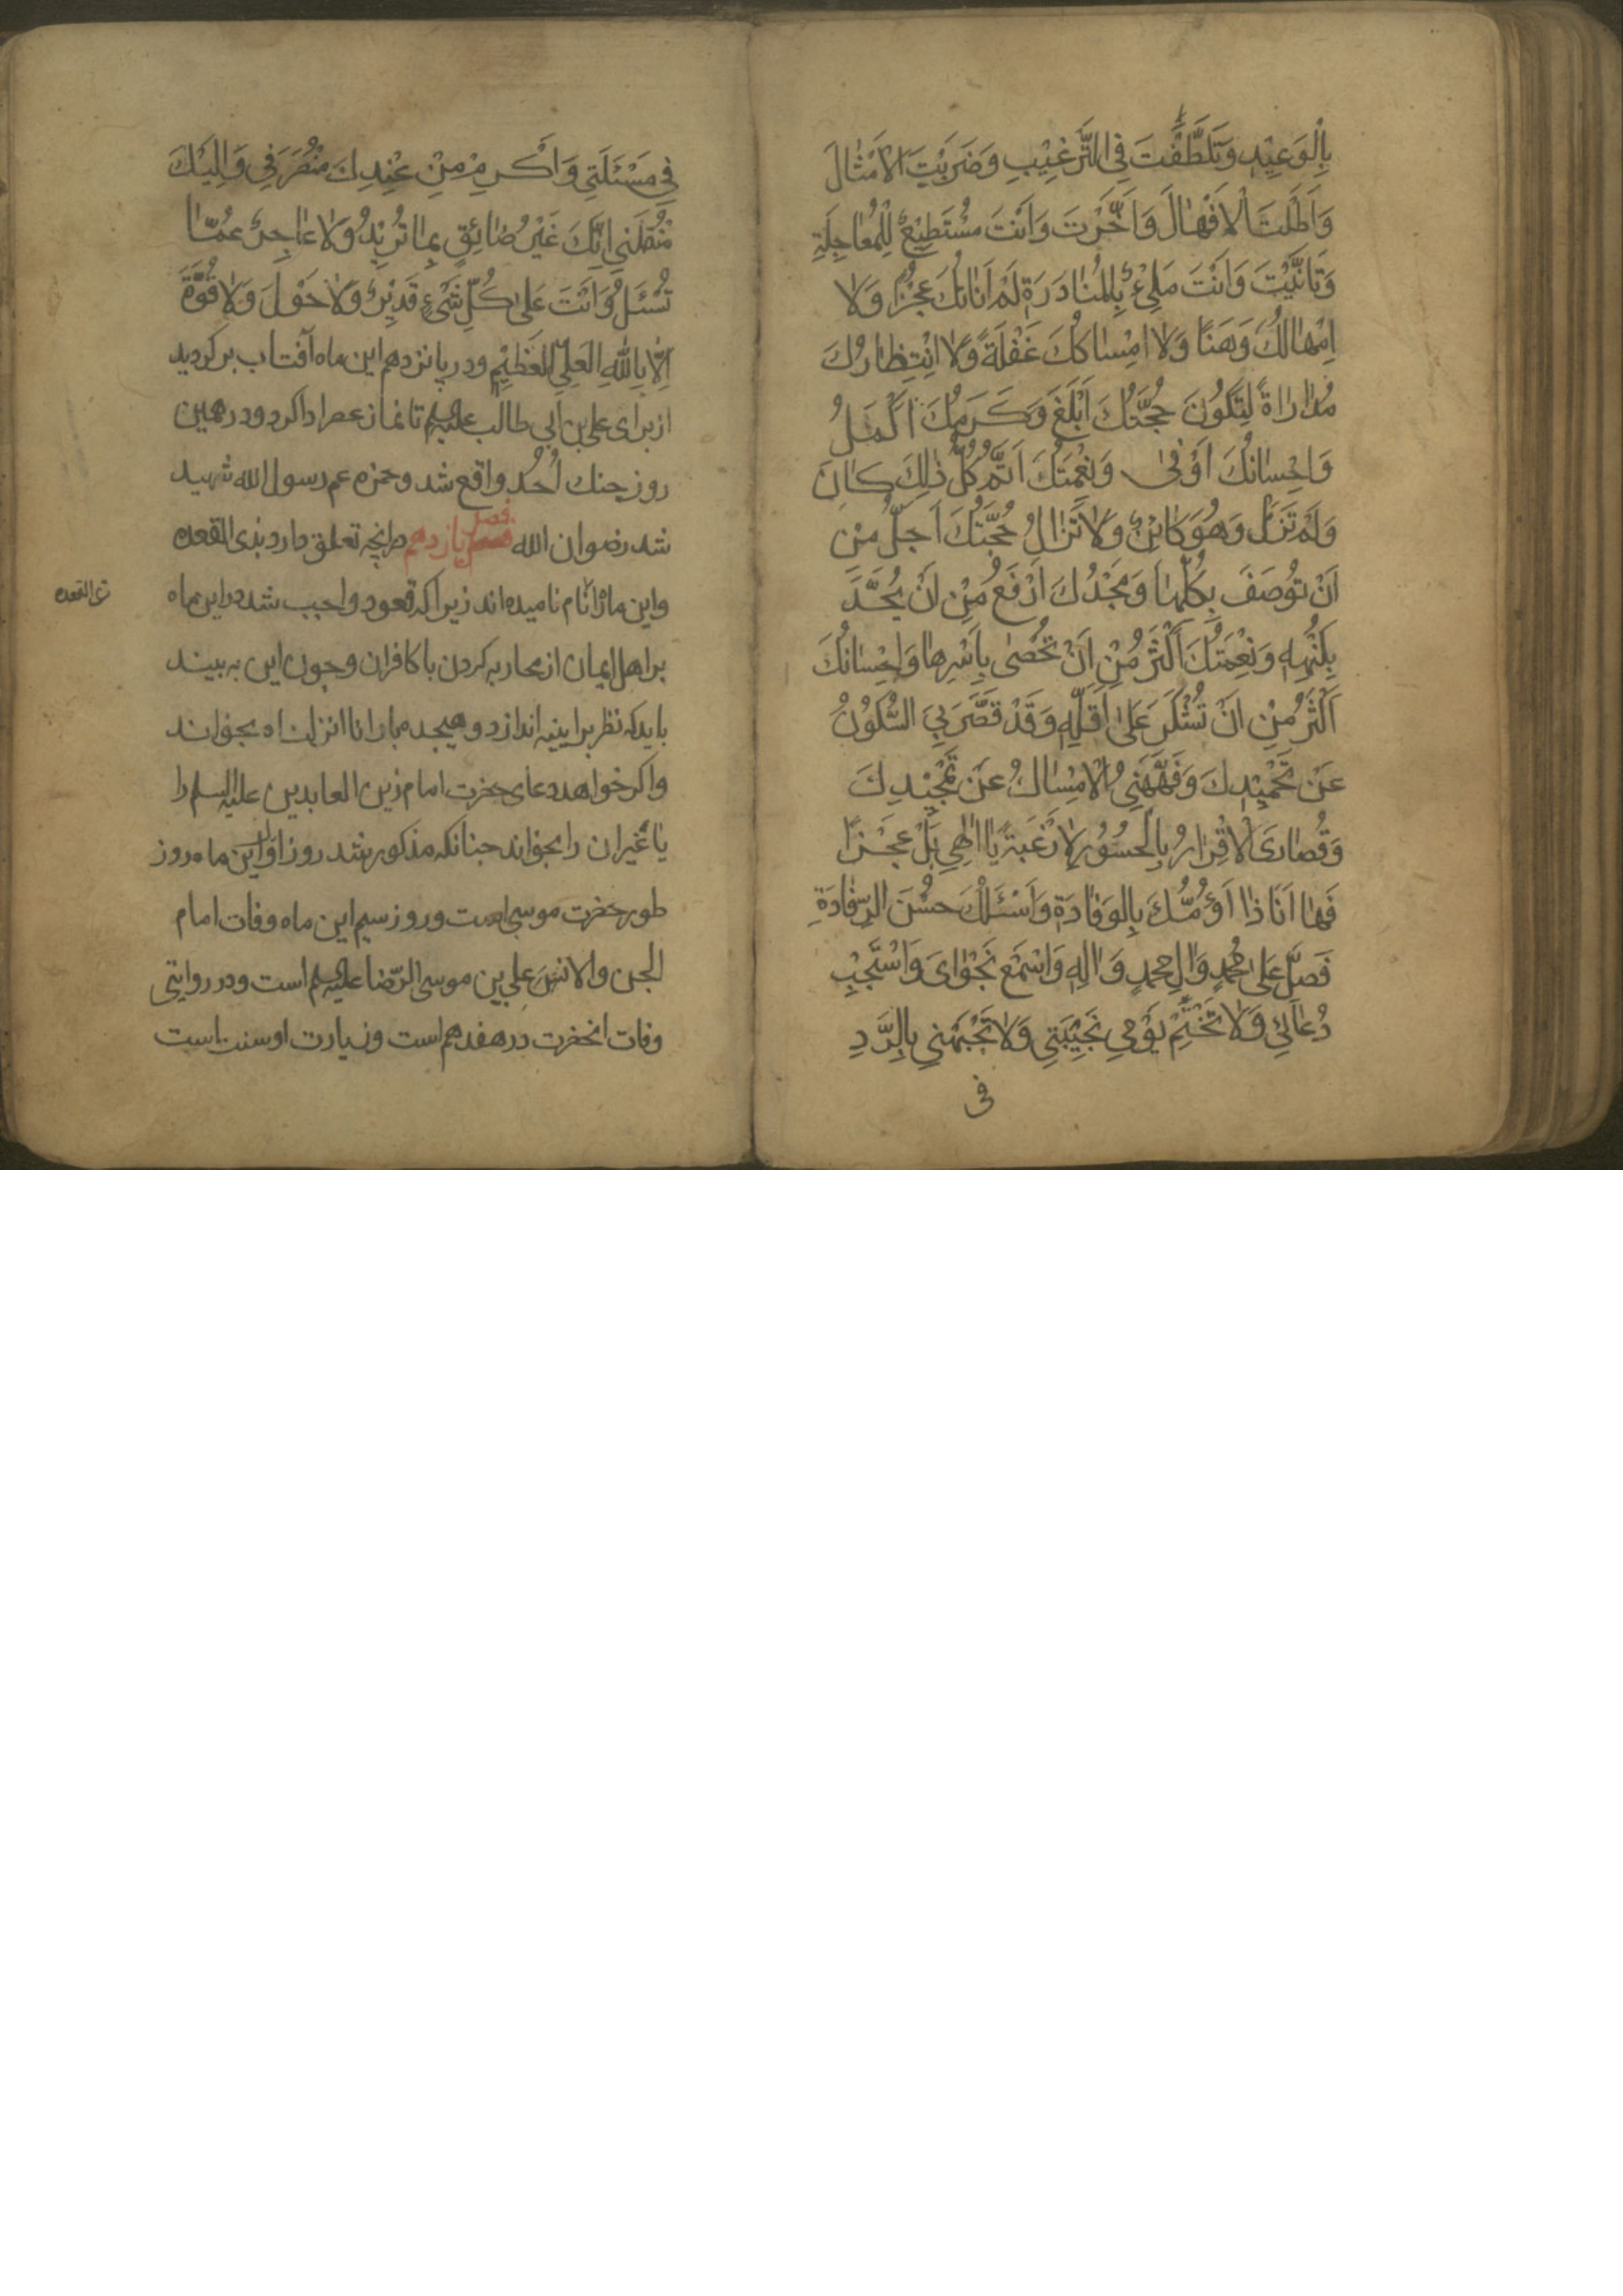 بِالْوَعِيْدِ وَتَلَطَّفْتَ فِي التَّرْغِيْبِ وَضَرَبْتَ الْاَمْثٰالَ
وَاَطَلْتَ الْاِمْهٰالَ وَاَخَّرْتَ وَاَنْتَ مُسْتَطِيْعٌ لِلْمُعٰاجِلَةِ
وَتَاَنَّيْتَ وَاَنْتَ مَلِيْءٌ بِالْمُبٰادَرَةِ لَمْ اَنٰاتُكَ عَجْزًا وَلٰا
اِمْهٰالُكَ وَهَنًا وَلٰا اِمْسٰاكُكَ غَفْلَةً وَلٰا انْتِظٰارُكَ
مُدٰارٰاةً لِتَكُونَ حُجَّتُكَ اَبْلَغَ وَكَرَمُكَ اَكْمَلُ
وَاِحْسٰانُكَ اَوْفىٰ وَنِعْمَتُكَ اَتَمَّ كُلُّ ذٰلِكَ كٰانَ
وَلَمْ تَزَلْ وَهُوَ كٰائِنٌ وَلٰا تَزٰالُ حُجَّتُكَ اَجَلُّ مِنْ
اَنْ تُوصَفَ بِكُلِّهٰا وَمَجْدُكَ اَرْفَعُ مِنْ اَنْ يُحَدَّ
بِكُنْهِهِ وَنِعْمَتُكَ اَكْثَرُ مِنْ اَنْ تُحْصٰى بِاَسْرِهٰا وَاِحْسٰانُكَ
اَكْثَرُ مِنْ اَنْ تُشْكَرَ عَلىٰ اَقَلِّهِ وَقَدْ قَصَّرَ بِيَ السُّكُوْتُ
عَنْ تَحْمِيْدِكَ وَفَهَّهَنِي الْاِمْسٰاكُ عَنْ تَمْجِيْدِكَ
وَقُصٰارٰىَ الْاِقْرٰارُ بِالْحُسُوْرِ لٰا رَغْبَةً يٰا اِلٰهِي بَلْ عَجْزًا
فَهٰا اَنَا ذٰا اَؤُمُّكَ بِالْوِفٰادَةِ وَاَسْئَلُكَ حُسْنَ الرِّفٰادَةِ
فَصَلِّ عَلىٰ مُحَمَّدٍ وَاٰلِ مُحَمَّدٍ وَاٰلِهِ وَاسْمَعْ نَجْوٰاىَ وَاسْتَجِبْ
دُعٰائِي وَلٰا تَخْتِمْ يَوْمِي بِخَيْبَتِي وَلٰا تَجْبَهْنِي بِالرَّدِّ
فى
فِي مَسْئَلَتِي وَاَكْرِمْ مِنْ عِنْدِكَ مُنْصَرَفِي وَاِلَيْكَ
مُنْقَلَبِي اِنَّكَ غَيْرُ ضٰائِقٍ بِمٰا تُرِيْدُ وَلٰا عٰاجِزٌ عَمّٰا
تُسْئَلُ وَاَنْتَ عَلىٰ كُلِّ شَيْءٍ قَدِيْرٌ وَلٰا حَوْلَ وَلٰا قُوَّةَ
اِلّٰا بِاللّٰهِ الْعَلِيِّ الْعَظِيْمِ ودر پانزدهم اين ماه آفتاب بركرديد
از براى على بن ابى طالب عليه السلم تا نماز عصر ادا كرد ودر همين
روز جنك اُحُد واقع شد وحمزه عم رسول الله شهيد
شد رضوان الله فصل يازدهم در انچه تعلق دارد بذى القعده
واين ماه را نام ناميده اند زيرا كه قعود واجب شد در اين ماه
ذى القعده
بر اهل ايمان از محاربه كردن با كافران وچون اين به بيند
بايد كه نظر بر ايينه اندازد وهيجده بار انا انزلناه بخواند
واكر خواهد دعاى حضرت امام زين العابدين عليه السلم را
يا غير ان را بخواند چنانكه مذكور شد روز اول اين ماه روز
طور حضرت موسى است وروز سيم اين ماه وفات امام
الجن والانس على بن موسى الرّضا عليه السلم است ودر روايتى
وفات انحضرت در هفدهم است وزيارت او سنت است